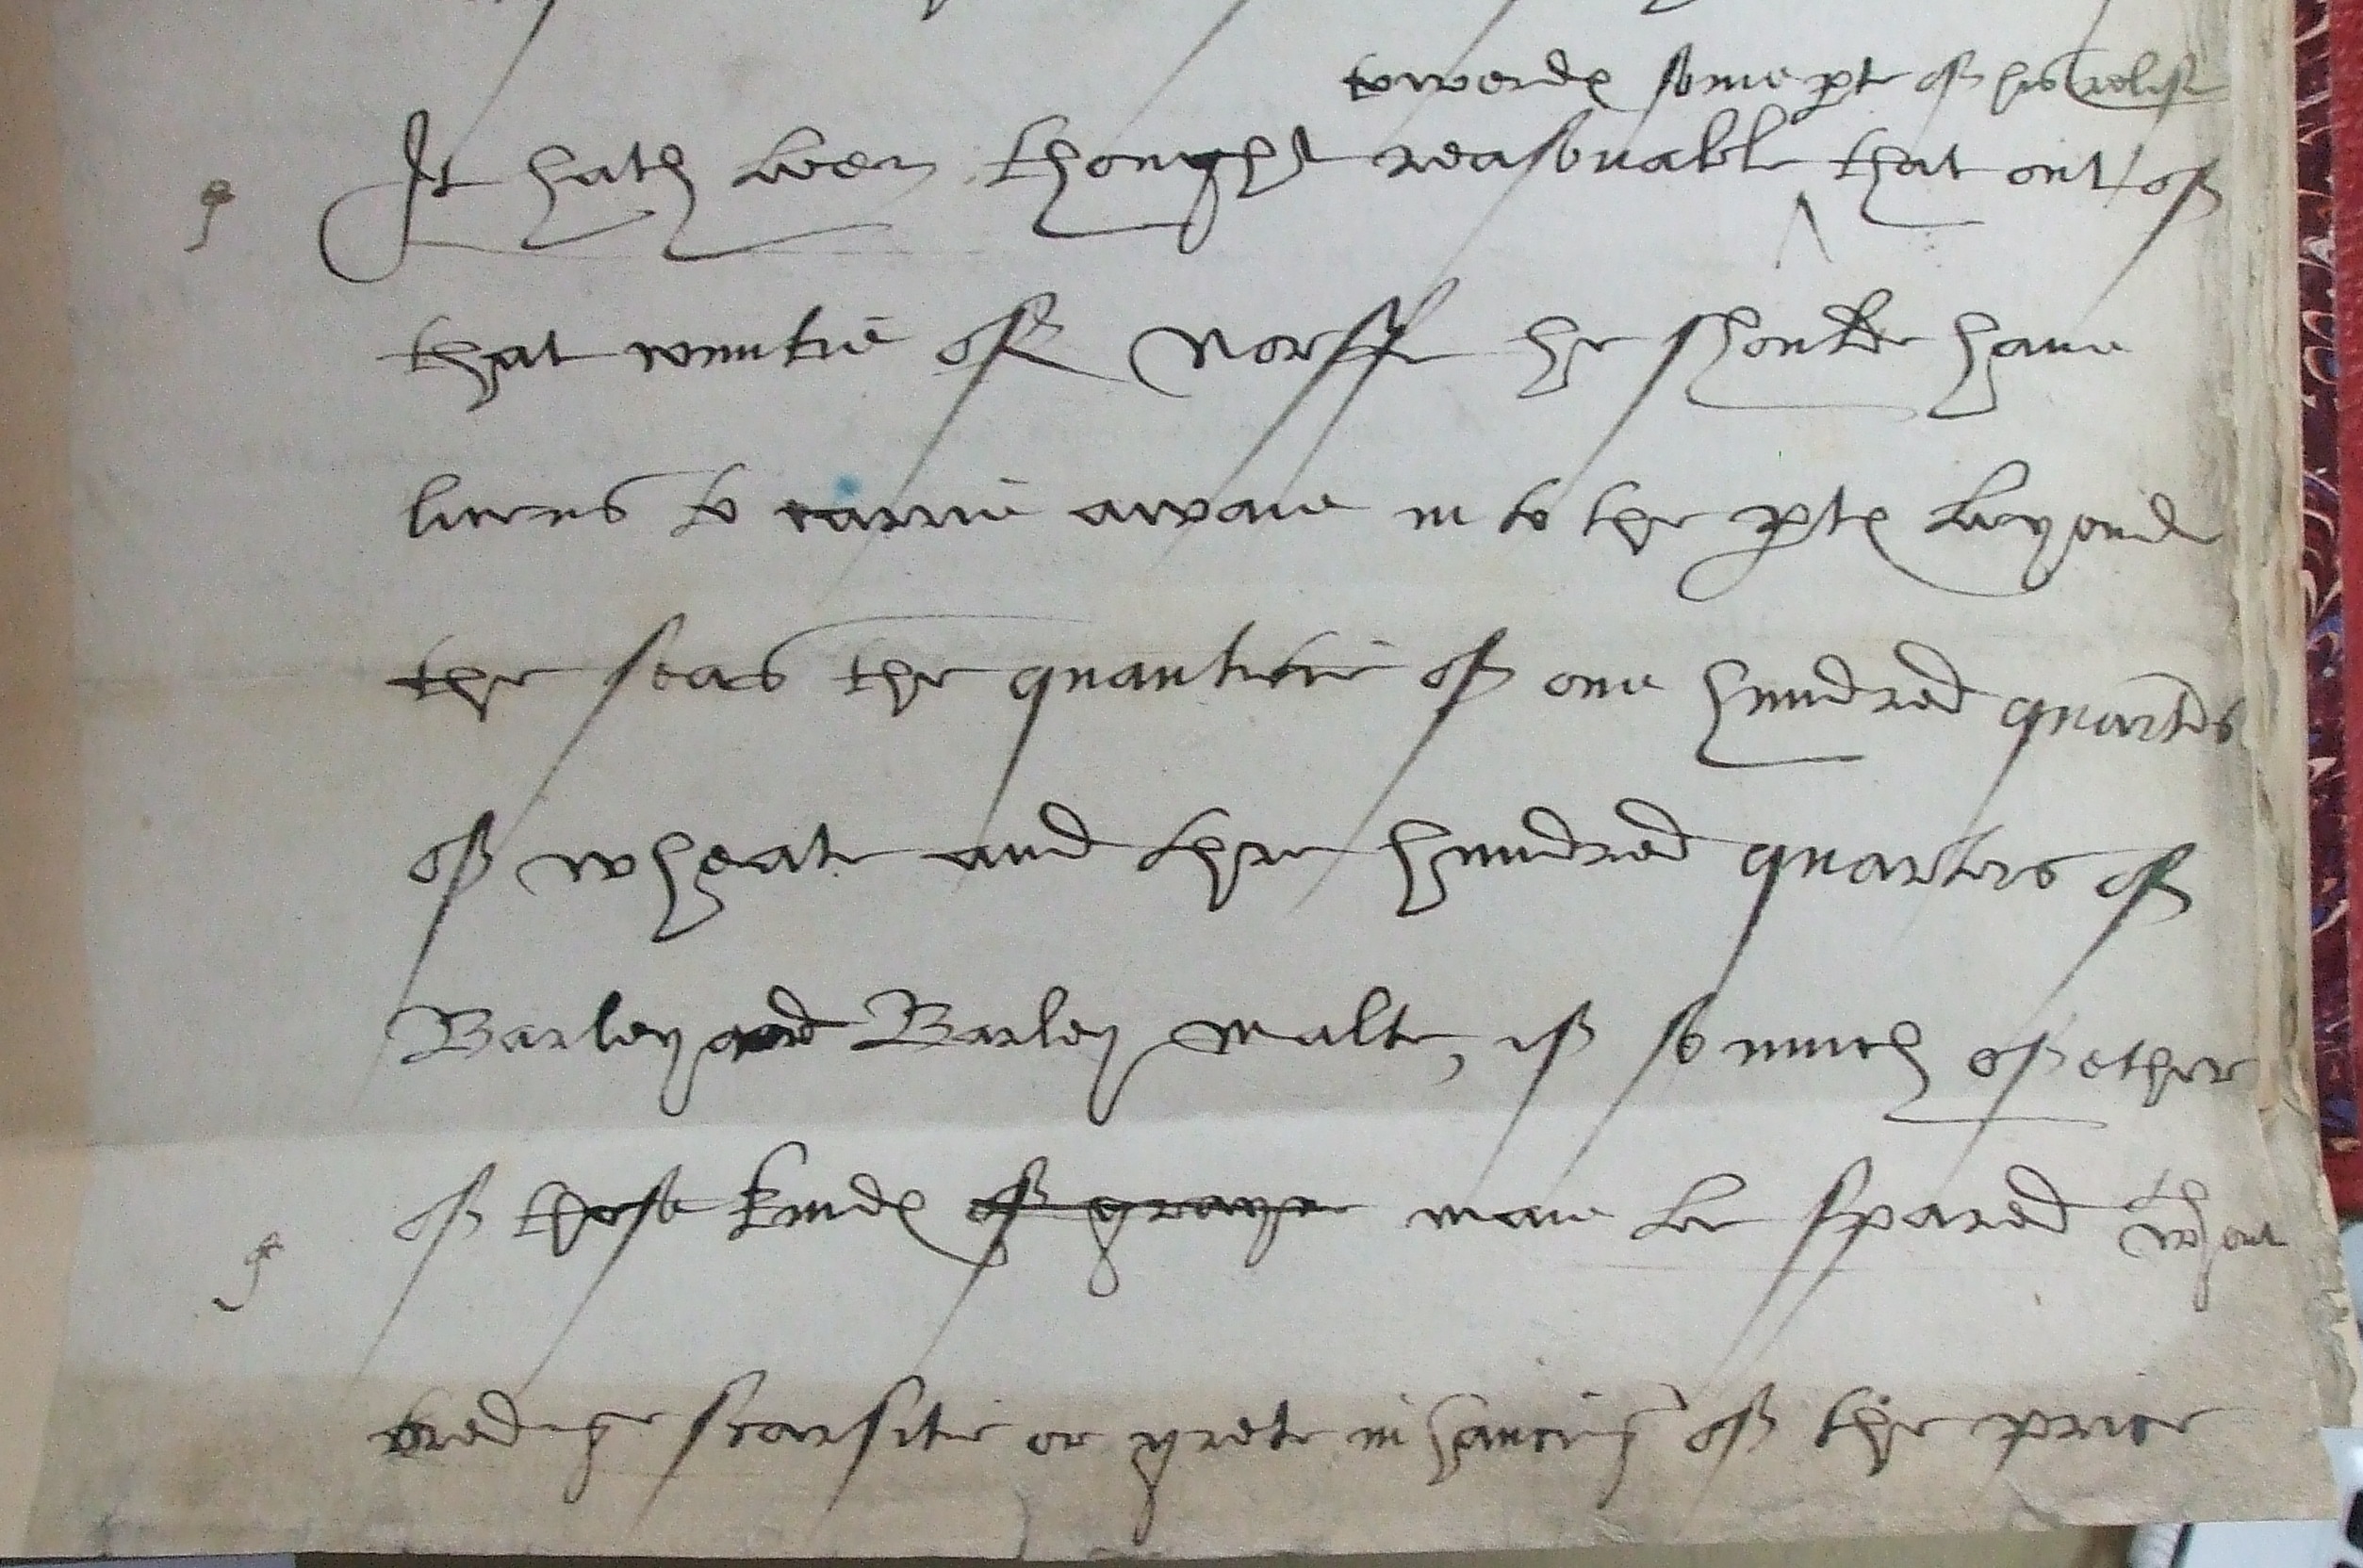 towerdes some pt of his relif
It hath been thought reasonable that out of
that countie of Norff he should haue
licens to carrie awaie in to the ptes beyond
the seas the quantitie of one hundred quarters
of wheate and thre hundred quarters of
Barley and Barley malte, if so much of ether
of those kindes of grayne maie be spared wthout
bredinge scarsitie or grete inhancing of the price